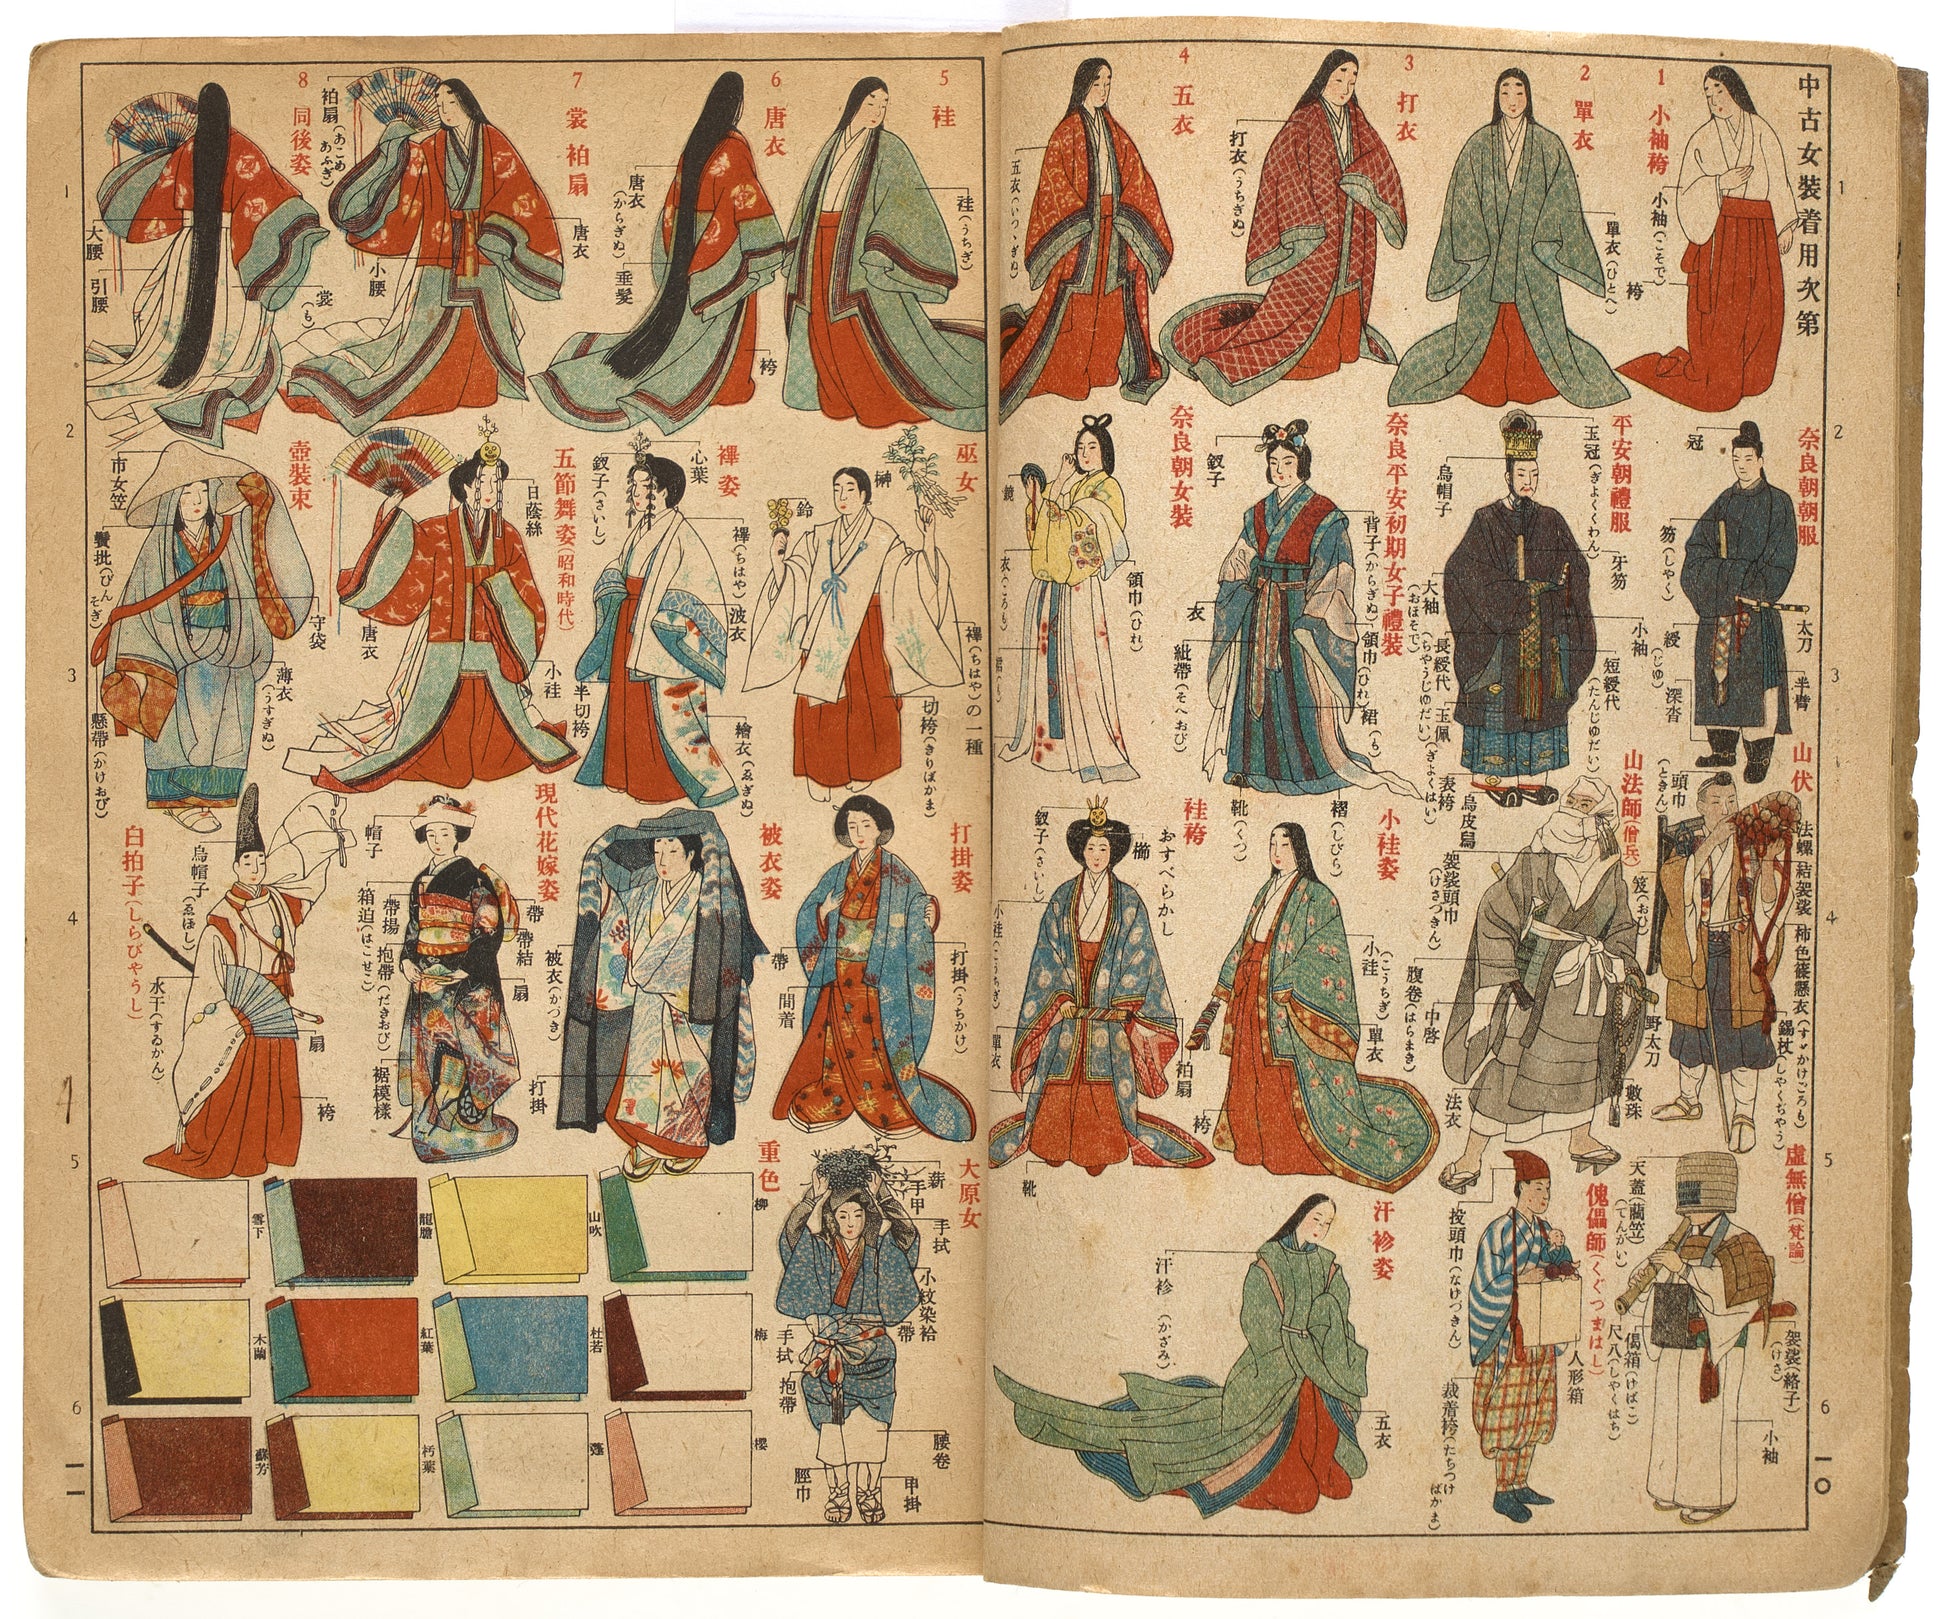 中古女裝着用次第
1 小袖袴
小袖(こそで)
袴
2 單衣
單衣(ひとへ)
3 打衣
打衣(うちぎぬ)
4 五衣
五衣(いつゝぎぬ)
5 袿
袿(うちぎ)
6 唐衣
唐衣(からぎぬ)
垂髮
袴
7 裳 袙扇
袙扇(あこめあふぎ)
唐衣
小腰
裳(も)
8 同後姿
大腰
引腰
奈良朝朝服
冠
笏(しやく)
綬(じゆ)
太刀
半臂
深沓
平安朝禮服
玉冠(ぎよくくわん)
烏帽子
牙笏
大袖(おほそで)
小袖
長綬代(ちやうじゆだい)
短綬代(たんじゆだい)
玉佩(ぎよくはい)
表袴
烏皮舃
奈良平安初期女子禮裝
釵子
背子(からぎぬ)
領巾(ひれ)
衣
紕帶(そへおび)
裙(も)
褶(しびら)
靴(くつ)
奈良朝女裝
鏡
領巾(ひれ)
衣(ころも)
巫女
榊
鈴
襷(ちはや)の一種
切袴(きりばかま)
襷姿
心葉
釵子(さいし)
襷(ちはや)
波衣
半切袴
繪衣(ゑぎぬ)
五節舞姿(昭和時代)
日蔭絲
唐衣
小袿
壺裝束
市女笠
鬢批(びんそぎ)
守袋
薄衣(うすぎぬ)
懸帶(かけおび)
山伏
頭巾(ときん)
法螺
結袈裟
笈(おひ)
柿色篠懸衣(すゞかけごろも)
錫杖(しやくぢやう)
山法師(僧兵)
袈裟頭巾(けさづきん)
腹卷(はらまき)
中啓
野太刀
數珠
法衣
小袿姿
小袿(こうちぎ)
單衣
袴
袿袴
おすべらかし
釵子(さいし)
櫛
小袿(こうちぎ)
單衣
袙扇
靴
打掛姿
打掛(うちかけ)
帶
間着
被衣姿
被衣(かづき)
打掛
現代花嫁姿
帽子
帶揚
箱迫(はこせこ)
抱帶(だきおび)
帶
帶結
扇
裾模樣
白拍子(しらびやうし)
烏帽子(ゑぼし)
水干(すゐかん)
扇
袴
虛無僧(梵論)
天蓋(藺笠)(てんがい)
偈箱(けばこ)
尺八(しやくはち)
袈裟(絡子)(けさ)
小袖
傀儡師(くぐつまはし)
投頭巾(なげづきん)
人形箱
裁着袴(たちつけばかま)
汗衫姿
汗衫(かざみ)
五衣
大原女
薪
手甲
手拭
小紋染袷
帶
手拭
抱帶
腰卷
脛巾
甲掛
重色
柳
山吹
龍膽
雪下
梅
杜若
紅葉
木蘭
櫻
朽葉
蘇芳
一〇
一一
1
2
3
4
5
6
1
2
3
4
5
6